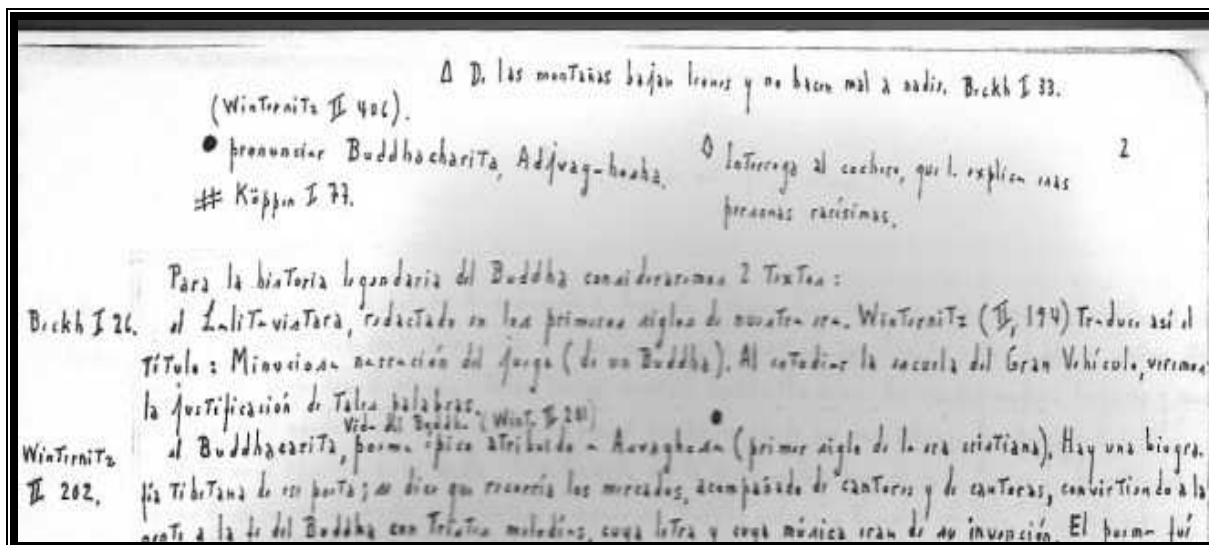 Δ D. las montañas bajan leones y no hacen mal a nadie. Beckh I 33.
(Winternitz II 406).
● pronunciar Buddhacharita, Adjvag-hosha.
## Köppen I 77.
2
Δ Interroga al cochero, que l. explica esas
personas rarísimas.
Para la historia legendaria del Buddha consideraremos 2 textos:
Beckh I 26.
el Lalitavistara, redactado en los primeros siglos de nuestra era. Winternitz (II, 194) traduce así el
título: Minuciosa narración del juego (de un Buddha). Al estudiar la escuela del Gran Vehículo, veremos
la justificación de tales palabras.
Vida del Buddha (Wint. II 201)
●
Winternitz
II 202.
el Buddhacarita, poema épico atribuido a Asvaghosha (primer siglo de la era cristiana). Hay una biogra-
fía tibetana de ese poeta; se dice que recorría los mercados, acompañado de cantores y de cantoras, convirtiendo a la
gente a la fe del Buddha con tristes melodías, cuya letra y cuya música eran de su invención. El poema fué